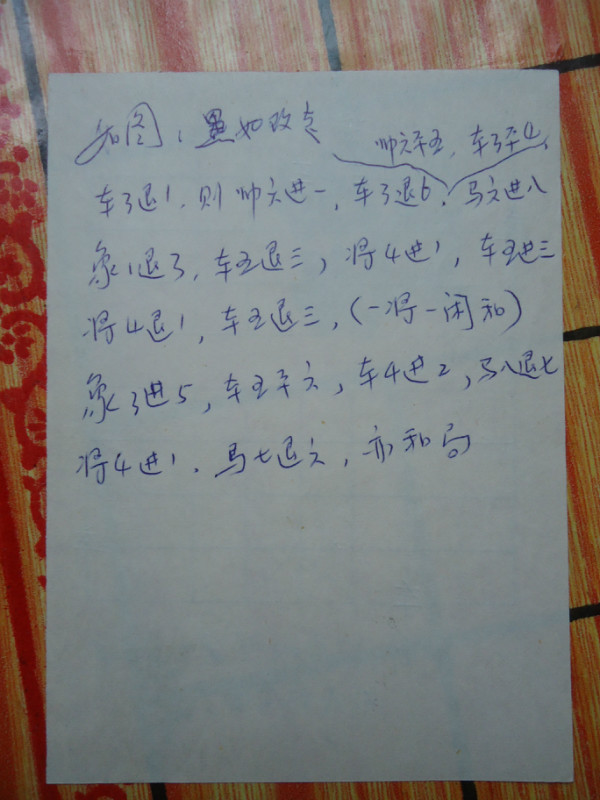 如图，黑如改走
帅六平五，车3平4，
车3退1，则帅六进一，车3退6，马六进八
象1退3，车五退三，将4进1，车五进三
将4退1，车五退三，(一将一闲和)
象3进5，车五平六，车4进2，马八退七
将4进1，马七退六，亦和局